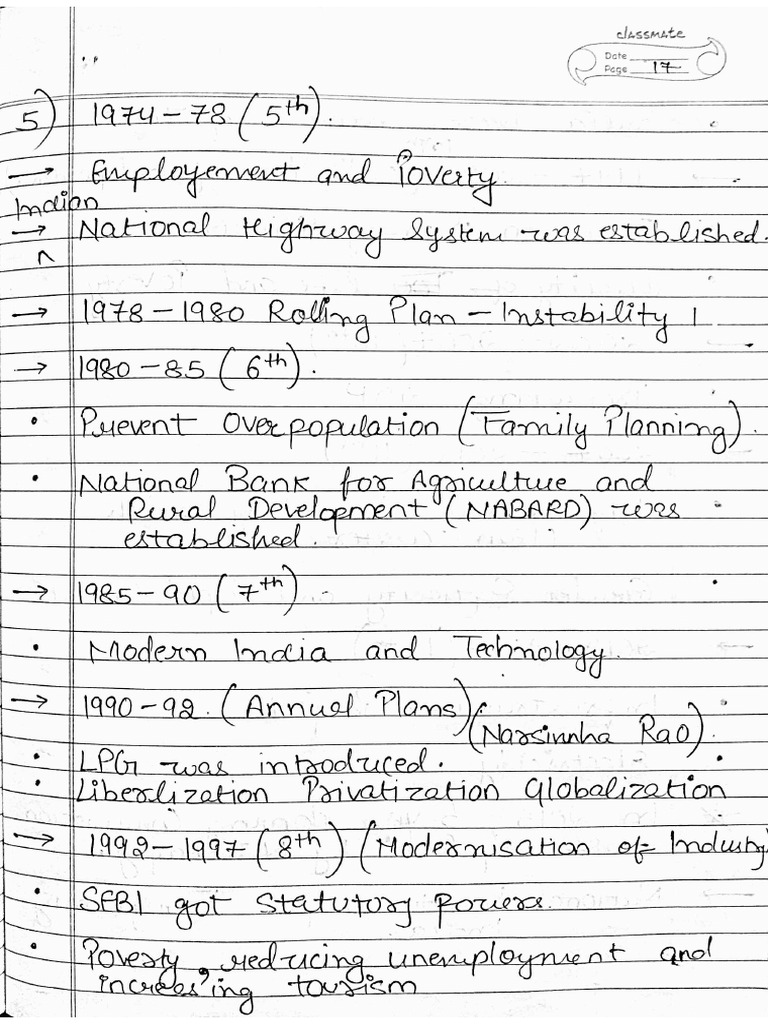 classmate
Date
Page 17
5) 1974-78 (5th).
→ Employement and Poverty.
Indian
→ National Highway System was established.
^
→ 1978-1980 Rolling Plan - Instability |
→ 1980-85 (6th).
• Prevent Overpopulation (Family Planning).
• National Bank for Agriculture and
Rural Development (NABARD) was
established.
→ 1985-90 (7th)
• Modern India and Technology.
→ 1990-92. (Annual Plans)
(Narsinnha Rao).
• LPG was introduced.
• Liberlization Privatization Globalization
→ 1992-1997 (8th) (Modernisation of Industry
• SEBI got Statutory powers.
• Poverty, reducing unemployment and
increasing tourism